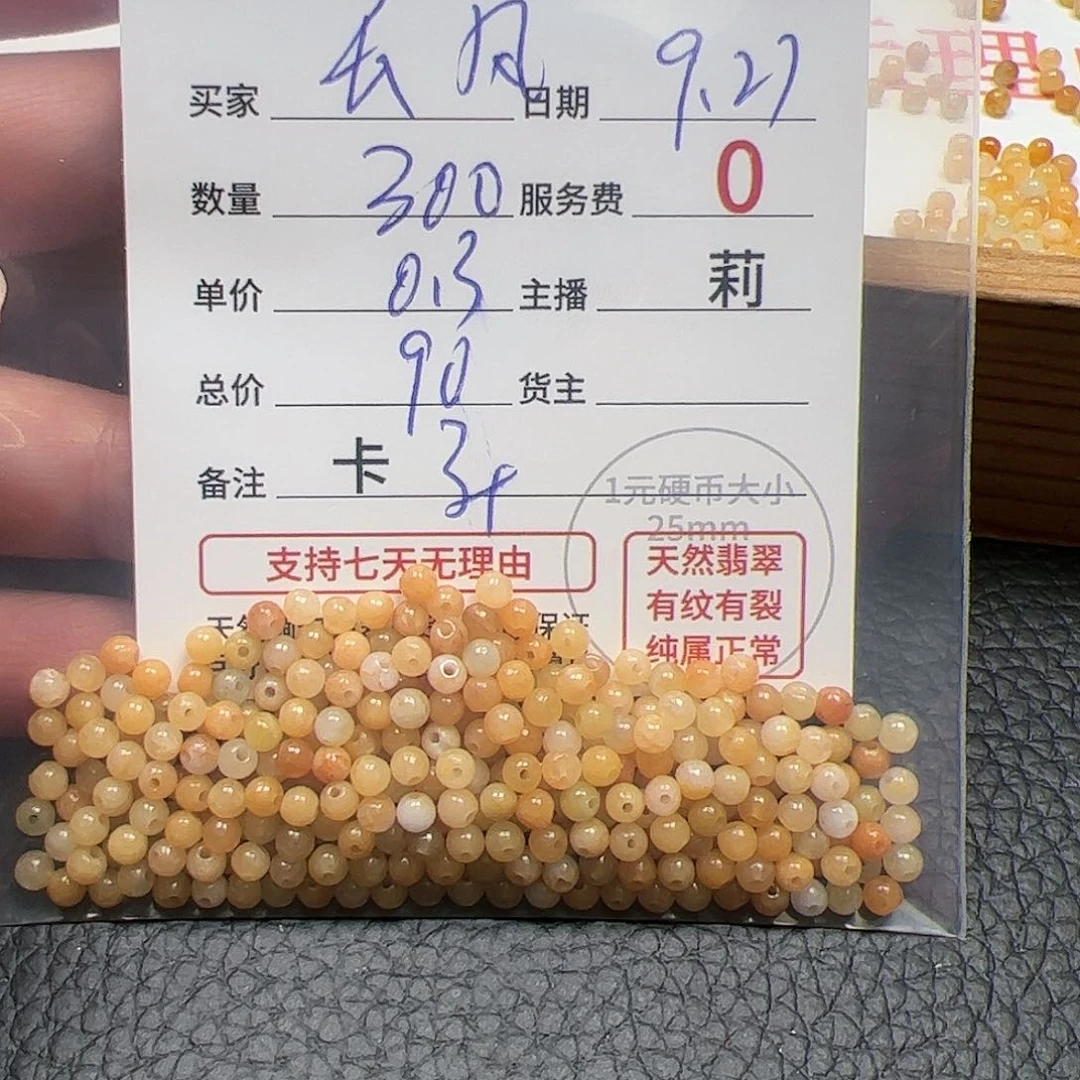 买家 长月 日期 9.27
数量 300 服务费 0
单价 0.3 主播 莉
总价 90 货主
备注 卡 3+
1元硬币大小
25mm
支持七天无理由
天然翡翠
有纹有裂
纯属正常
保证
理